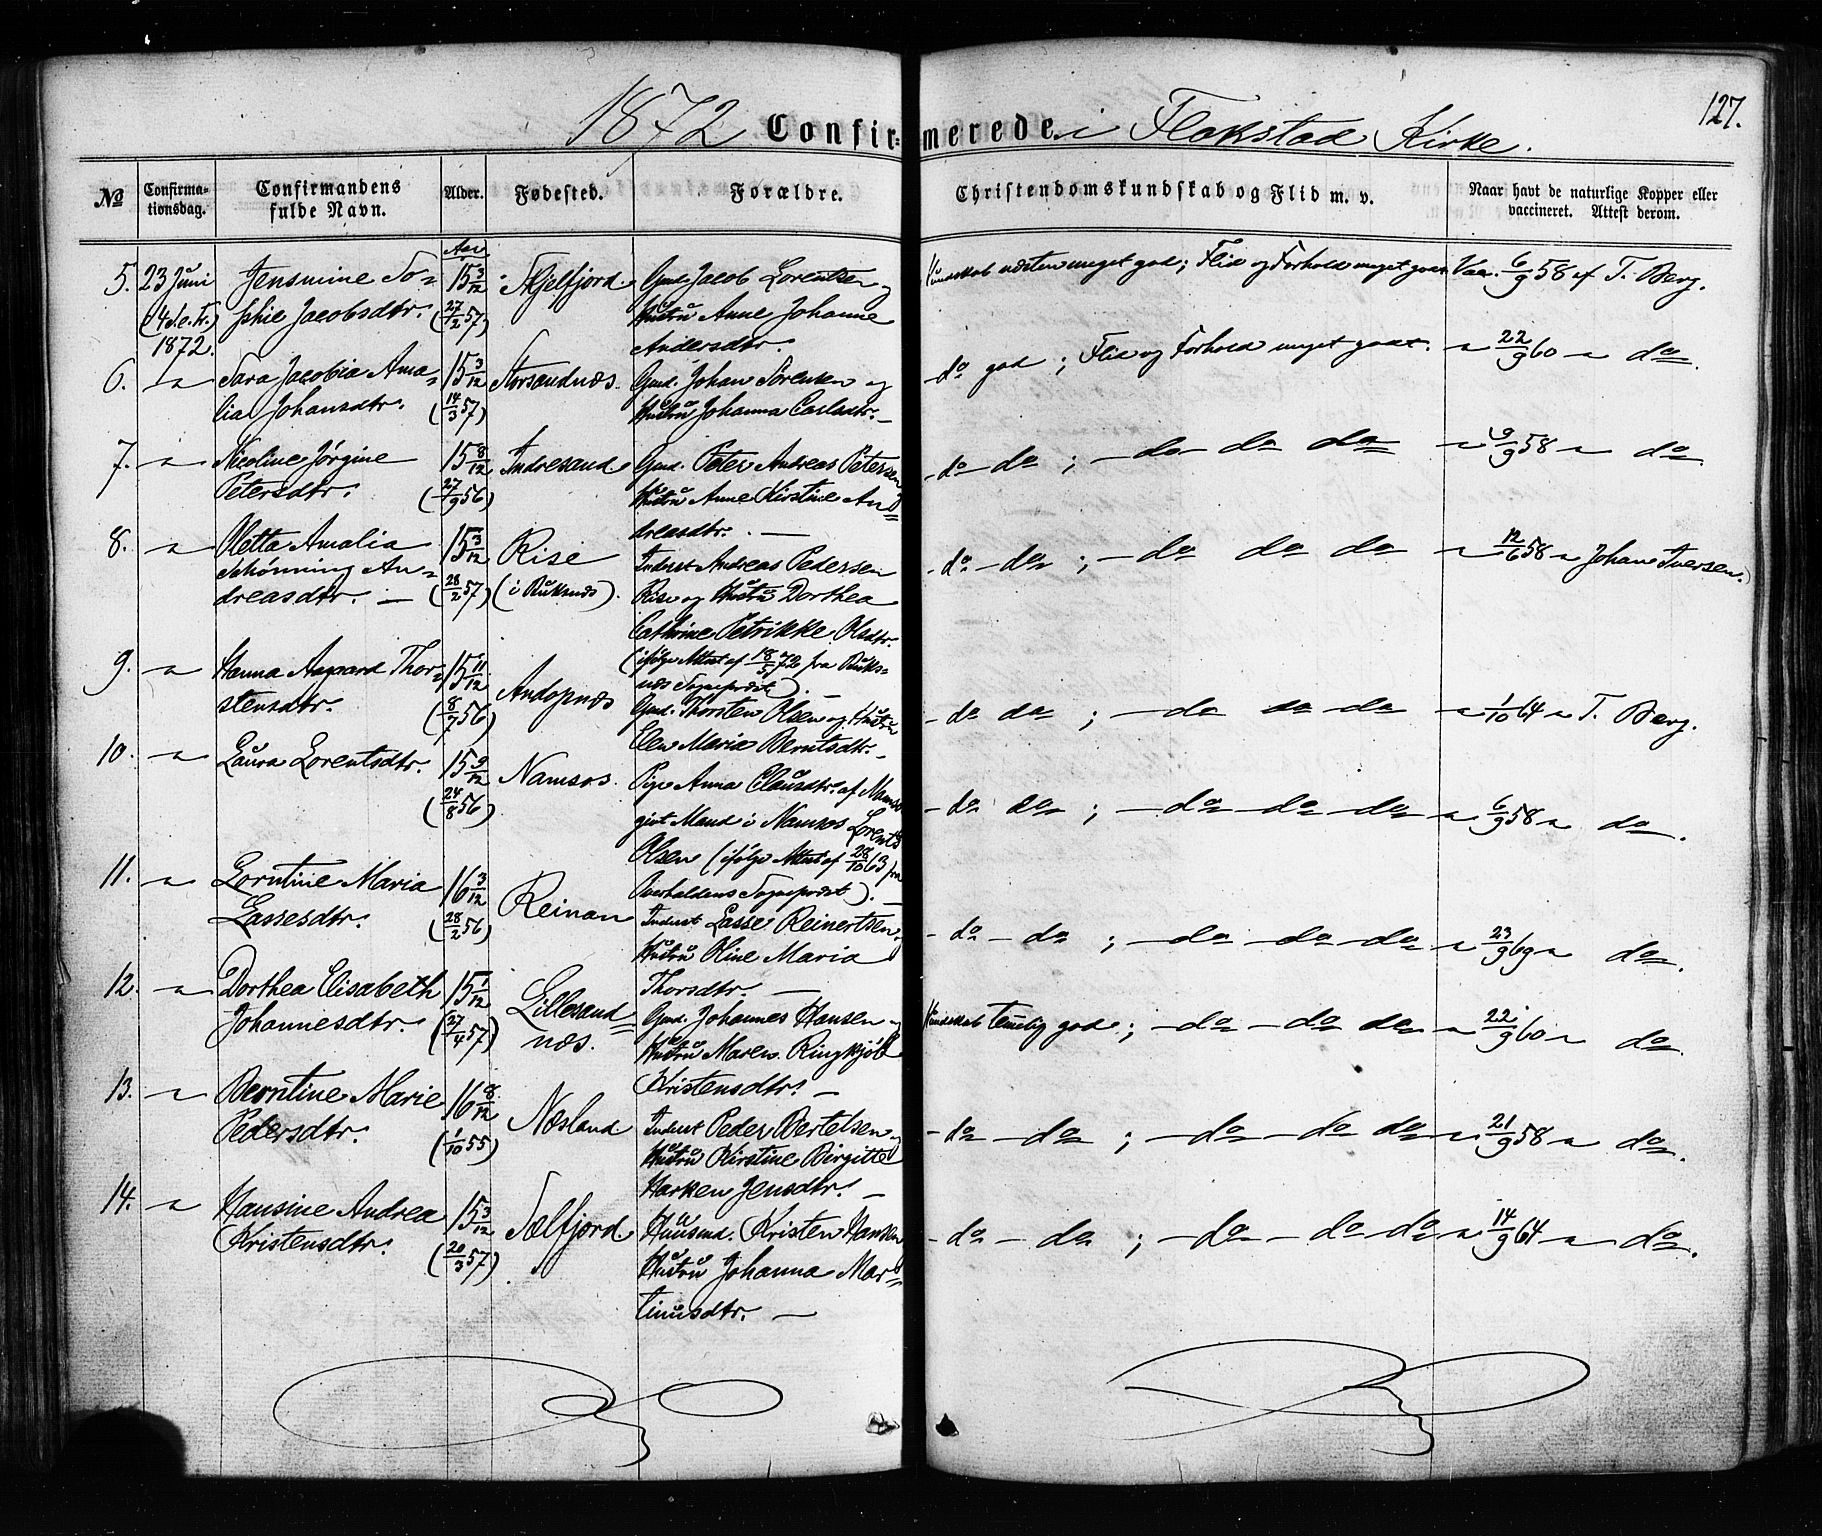 1872 Confirmerede i Flakstad Kirke.
127.
No
Confirmationsdag.
Confirmandens fulde Navn.
Alder.
Fødested.
Forældre.
Christendomskundskab og Flid m. v.
Naar havt de naturlige Kopper eller vaccineret. Attest derom.
Aar
5. 23 Juni Jensmine So= 15 3/12 Skjelfjord. Gmd. Jacob Lorentsen og Kundskab næsten meget god; Flid og Forhold meget godt Vac. 6/9 58 af T. Berg.
(4 S. e. Tr.) phie Jacobsdtr. (27/2 57) Hustru Anne Johanne
1872. Andersdtr.
6. " Sara Jacobia Ama= 15 3/12 Storsandnæs. Gmd. Johan Sörensen og - do god; Flid og Forhold meget godt. " 22/9 60 " do.
lia Johansdtr. (14/3 57) Hustru Johanna Carlsdtr. —
7. " Nicoline Jörgine 15 8/12 Andresand Gmd. Peter Andreas Petersen - do - do; - do do do " 9/9 58 " do
Petersdtr. (27/9 56) Hustru Anne Kirstine An=
dreasdtr. —
8. " Oletta Amalia 15 3/12 Rise Inderst Andreas Pedersen - do - do; - do do do " 12/6 58 " Johan Iversen.
Schönning An= (28/2 57) (i Buksnæs). Rise og Hustru Dorthea
dreasdtr. — Cathrine Petrikke Olsdtr.
(ifölge Attest af 18/5 72 fra Buks=
næs Sognepræst). —
9. " Hanna Aagaard Thor= 15 11/12 Andopnæs Gmd. Thorsten Olsen og Hustru - do do; - do do do " 1/10 64 " T. Berg.
stensdtr. (8/7 56) Elen Maria Berntsdtr. —
10. " Laura Lorentsdtr. 15 9/12 Namsos. Pige Anna Clausdtr. af Namsos - do do; - do - do - do " 6/9 58 " do.
(24/8 56) givt Mand i Namsos Lorents
Olsen (ifölge Attest af 28/10 63 fra
Overhaldens Sognepræst). —
11. " Lorntine Maria 16 3/12 Reinan Inderst Lasse Reinertsen - do - do; - do - do - do " 23/9 69 " do.
Lassesdtr. (28/2 56) Hustru Oline Maria
Thorsdtr. —
12. " Dorthea Elisabeth 15 1/12 Lillesand= Gmd. Johannes Hansen og Kundskab temelig god; - do - do do " 22/9 60 " do
Johannesdtr. (27/4 57) næs. Hustru Maren Ringkjöb
Kristensdtr. —
13. " Berntine Marie 16 8/12 Næsland Inderst Peder Bertelsen og - do - do; - do - do do " 21/9 58 " do.
Pedersdtr. (1/10 55) Hustru Kirstine Birgitte
Harken Jensdtr. —
14. " Hansine Andrea 15 3/12 Sælfjord Huusmd. Kristen Hansen - do - do; - do - do do " 14/9 64 " do.
Kristensdtr. (20/3 57) Hustru Johanna Mar=
tinusdtr. —